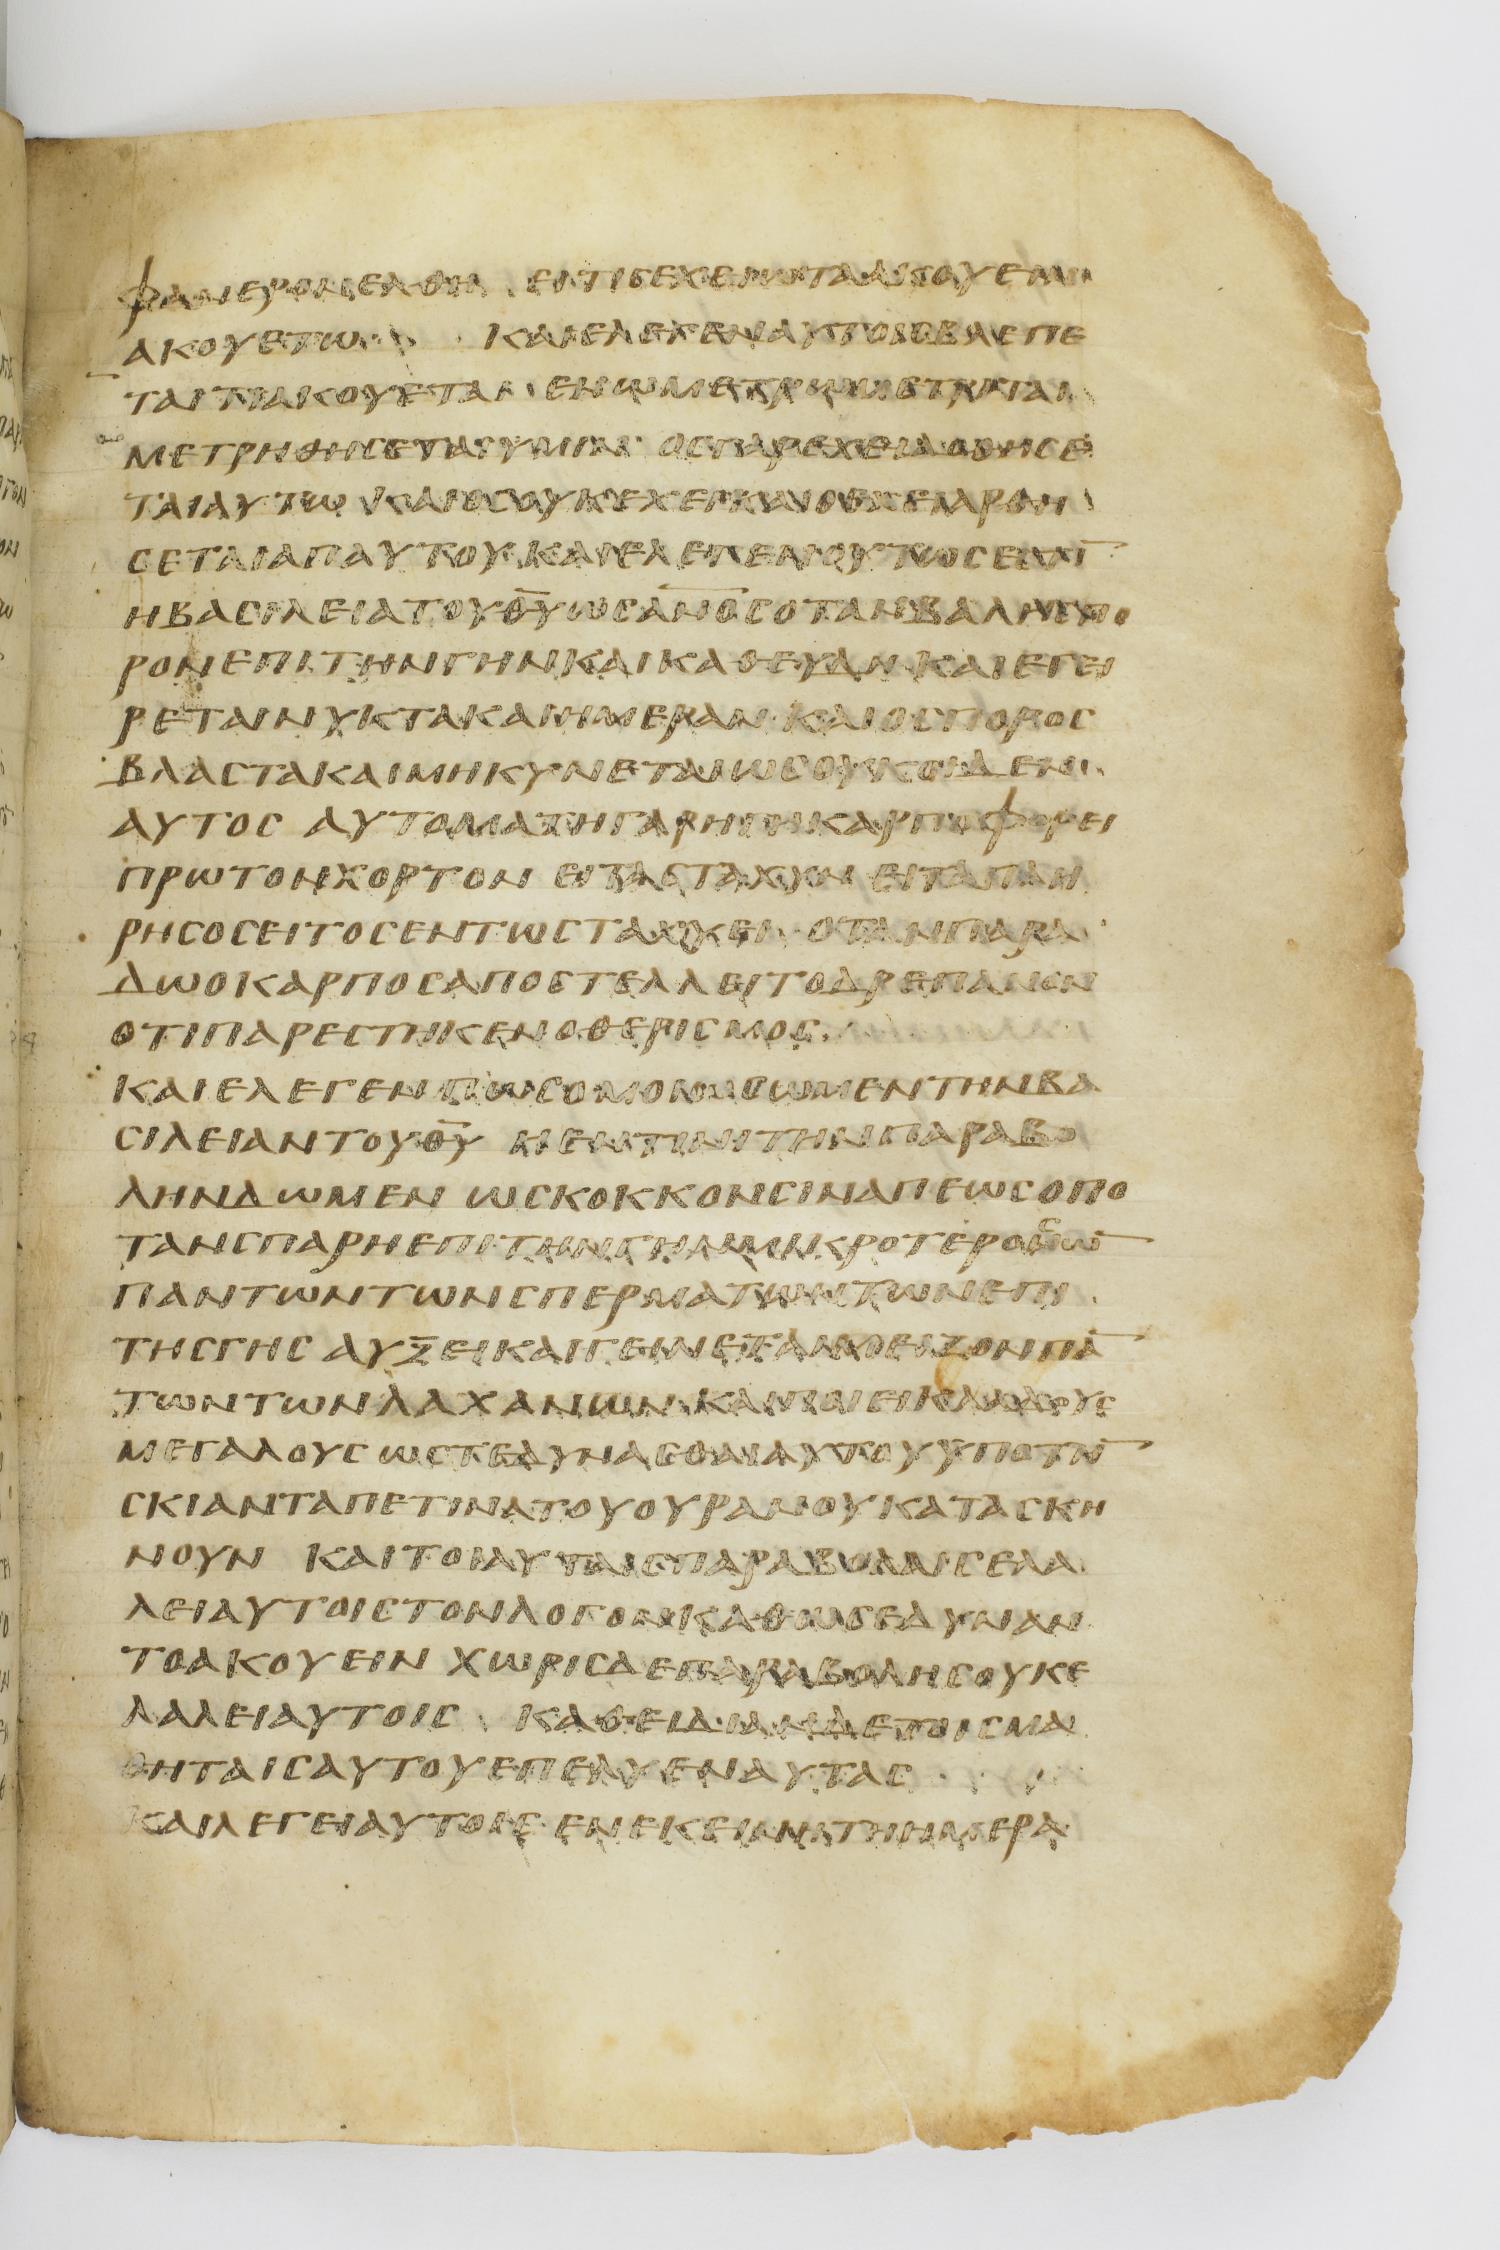 ΦΑΝΕΡΟΝ ΕΛΘΗ ΕΙΤΙΣ ΕΧΕΙ ΩΤΑ ΑΚΟΥΕΙΝ
ΑΚΟΥΕΤΩ ΚΑΙ ΕΛΕΓΕΝ ΑΥΤΟΙΣ ΒΛΕΠΕ
ΤΑΙ ΤΙ ΑΚΟΥΕΤΑΙ ΕΝ Ω ΜΕΤΡΩ ΜΕΤΡΙΤΑΙ
ΜΕΤΡΗΘΗϹΕΤΑΙ ΥΜΙΝ ΟϹ ΓΑΡ ΕΧΕΙ ΔΟΘΗϹΕ
ΤΑΙ ΑΥΤΩ ΚΑΙ ΟϹ ΟΥΚ ΕΧΕΙ ΚΑΙ Ο ΕΧΕΙ ΑΡΘΗ
ϹΕΤΑΙ ΑΠ ΑΥΤΟΥ ΚΑΙ ΕΛΕΓΕΝ ΟΥΤΩϹ ΕϹΤΙ̅
Η ΒΑϹΙΛΕΙΑ ΤΟΥ Θ̅Υ̅ ΩϹ ΑΝ̅Ο̅Ϲ ΟΤΑΝ ΒΑΛΗ ϹΠΟ
ΡΟΝ ΕΠΙ ΤΗΝ ΓΗΝ ΚΑΙ ΚΑΘΕΥΔΗ ΚΑΙ ΕΓΕΙ
ΡΕΤΑΙ ΝΥΚΤΑ ΚΑΙ ΗΜΕΡΑΝ ΚΑΙ Ο ϹΠΟΡΟϹ
ΒΛΑϹΤΑ ΚΑΙ ΜΗΚΥΝΕΤΑΙ ΩϹ ΟΥΚ ΟΙΔΕΝ
ΑΥΤΟϹ ΑΥΤΟΜΑΤΗ ΓΑΡ Η ΓΗ ΚΑΡΠΟΦΟΡΕΙ
ΠΡΩΤΟΝ ΧΟΡΤΟΝ ΕΙΤΑ ϹΤΑΧΥΝ ΕΙΤΑ ΠΛΗ
ΡΗϹ Ο ϹΕΙΤΟϹ ΕΝ ΤΩ ϹΤΑΧΥΕΙ ΟΤΑΝ ΠΑΡΑ
ΔΩ Ο ΚΑΡΠΟϹ ΑΠΟϹΤΕΛΛΕΙ ΤΟ ΔΡΕΠΑΝΟΝ
ΟΤΙ ΠΑΡΕϹΤΗΚΕΝ Ο ΘΕΡΙϹΜΟϹ
ΚΑΙ ΕΛΕΓΕΝ ΠΩϹ ΟΜΟΙΩϹΩΜΕΝ ΤΗΝ ΒΑ
ϹΙΛΕΙΑΝ ΤΟΥ Θ̅Υ̅ Η ΕΝ ΤΙΝΙ ΤΗΝ ΠΑΡΑΒΟ
ΛΗΝ ΔΩΜΕΝ ΩϹ ΚΟΚΚΟΝ ϹΙΝΑΠΕΩϹ ΟΠΟ
ΤΑΝ ϹΠΑΡΗ ΕΠΙ ΤΗΝ ΓΗΝ ΜΙΚΡΟΤΕΡΟϹ Ω̅
ΠΑΝΤΩΝ ΤΩΝ ϹΠΕΡΜΑΤΩΝ ΤΩΝ ΕΠΙ
ΤΗϹ ΓΗϹ ΑΥΞΕΙ ΚΑΙ ΓΕΙΝΕΤΑΙ ΜΕΙΖΟΝ ΠΑ̅
ΤΩΝ ΤΩΝ ΛΑΧΑΝΩΝ ΚΑΙ ΠΟΙΕΙ ΚΛΑΔΟΥϹ
ΜΕΓΑΛΟΥϹ ΩϹΤΕ ΔΥΝΑϹΘΑΙ ΑΥΤΟΥ ΥΠΟ ΤΗ̅
ϹΚΙΑΝ ΤΑ ΠΕΤΙΝΑ ΤΟΥ ΟΥΡΑΝΟΥ ΚΑΤΑϹΚΗ
ΝΟΥΝ ΚΑΙ ΤΟΙΑΥΤΑΙϹ ΠΑΡΑΒΟΛΑΙϹ ΕΛΑ
ΛΕΙ ΑΥΤΟΙϹ ΤΟΝ ΛΟΓΟΝ ΚΑΘΩϹ ΕΔΥΝΑΝ
ΤΟ ΑΚΟΥΕΙΝ ΧΩΡΙϹ ΔΕ ΠΑΡΑΒΟΛΗϹ ΟΥΚ Ε
ΛΑΛΕΙ ΑΥΤΟΙϹ ΚΑΘ ΕΙΔΙΑΝ ΔΕ ΤΟΙϹ ΜΑ
ΘΗΤΑΙϹ ΑΥΤΟΥ ΕΠΕΛΥΕΝ ΑΥΤΑϹ
ΚΑΙ ΛΕΓΕΙ ΑΥΤΟΙϹ ΕΝ ΕΚΕΙΝΗ ΤΗ ΗΜΕΡΑ